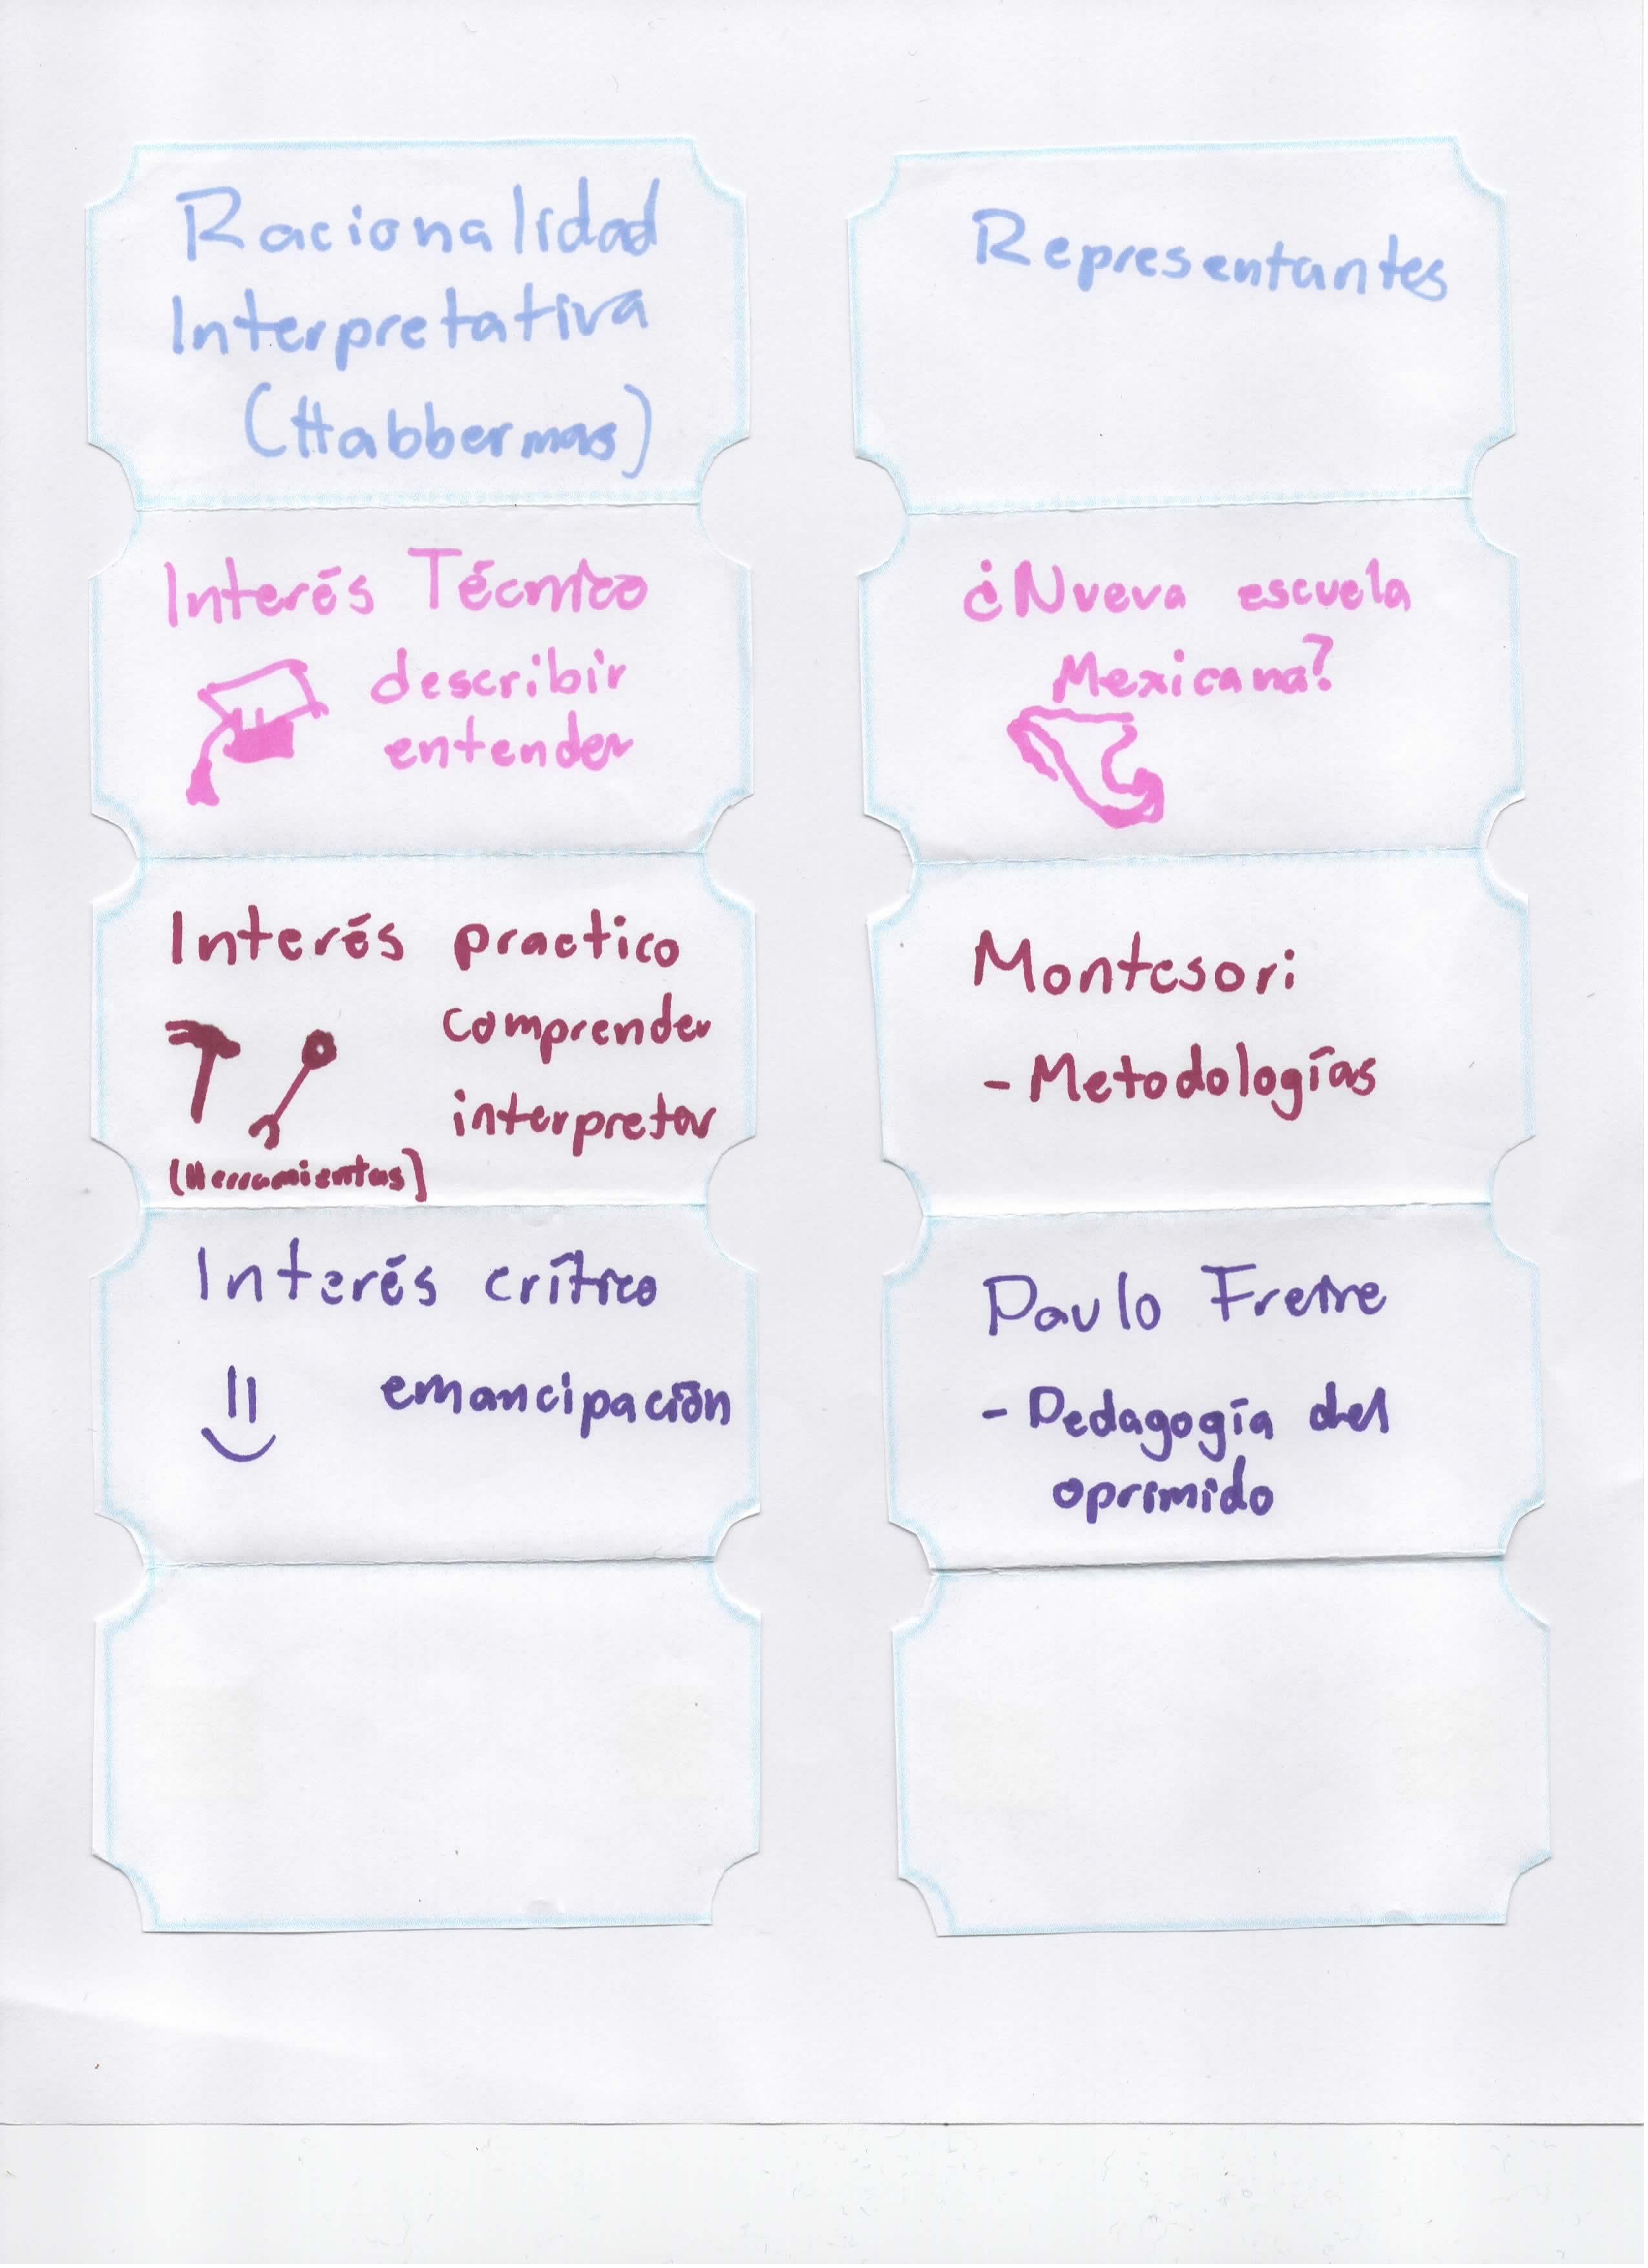 Racionalidad
Interpretativa
(Habbermas)
Interés Técnico
describir
entender
Interés practico
comprender
interpretar
(Herramientas)
Interés crítico
emancipación
Representantes
¿Nueva escuela
Mexicana?
Montesori
- Metodologías
Paulo Freire
- Pedagogía del
oprimido